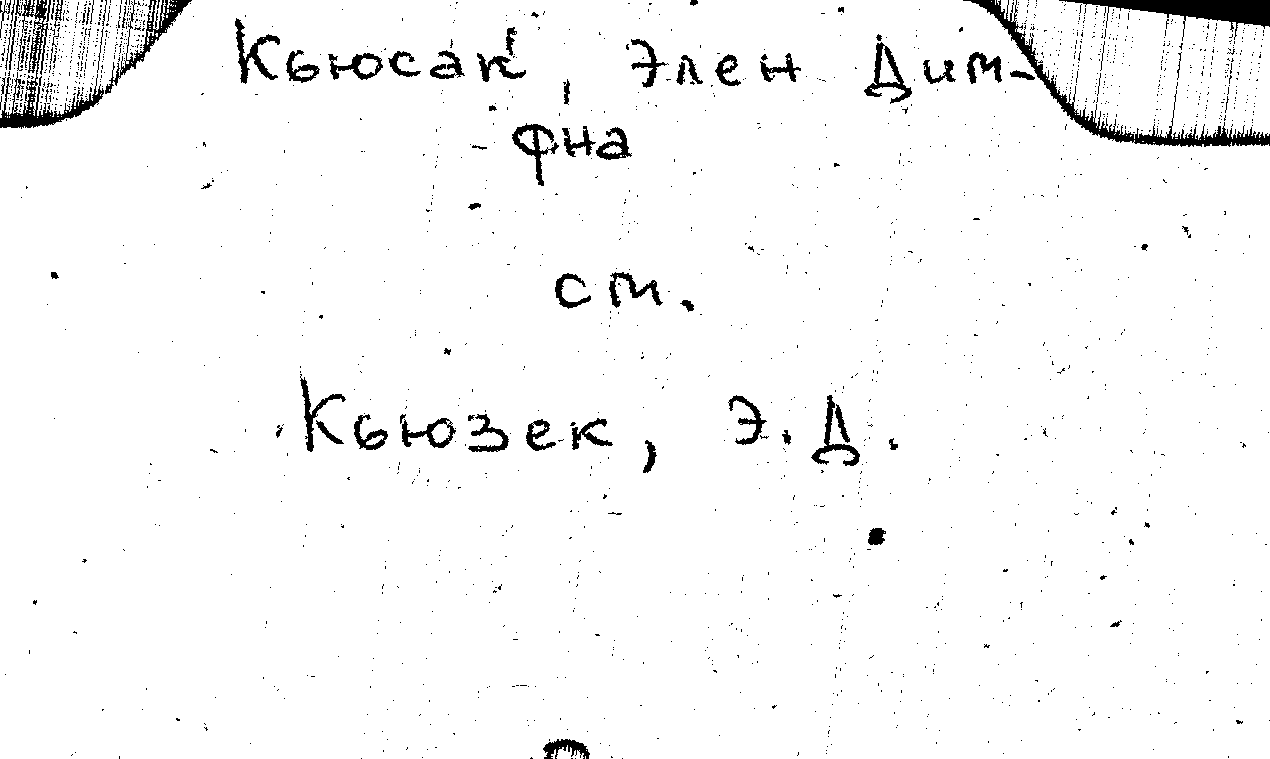 Кьюсак, Элен Дим-
фна
см.
Кьюзек, Э.Д.